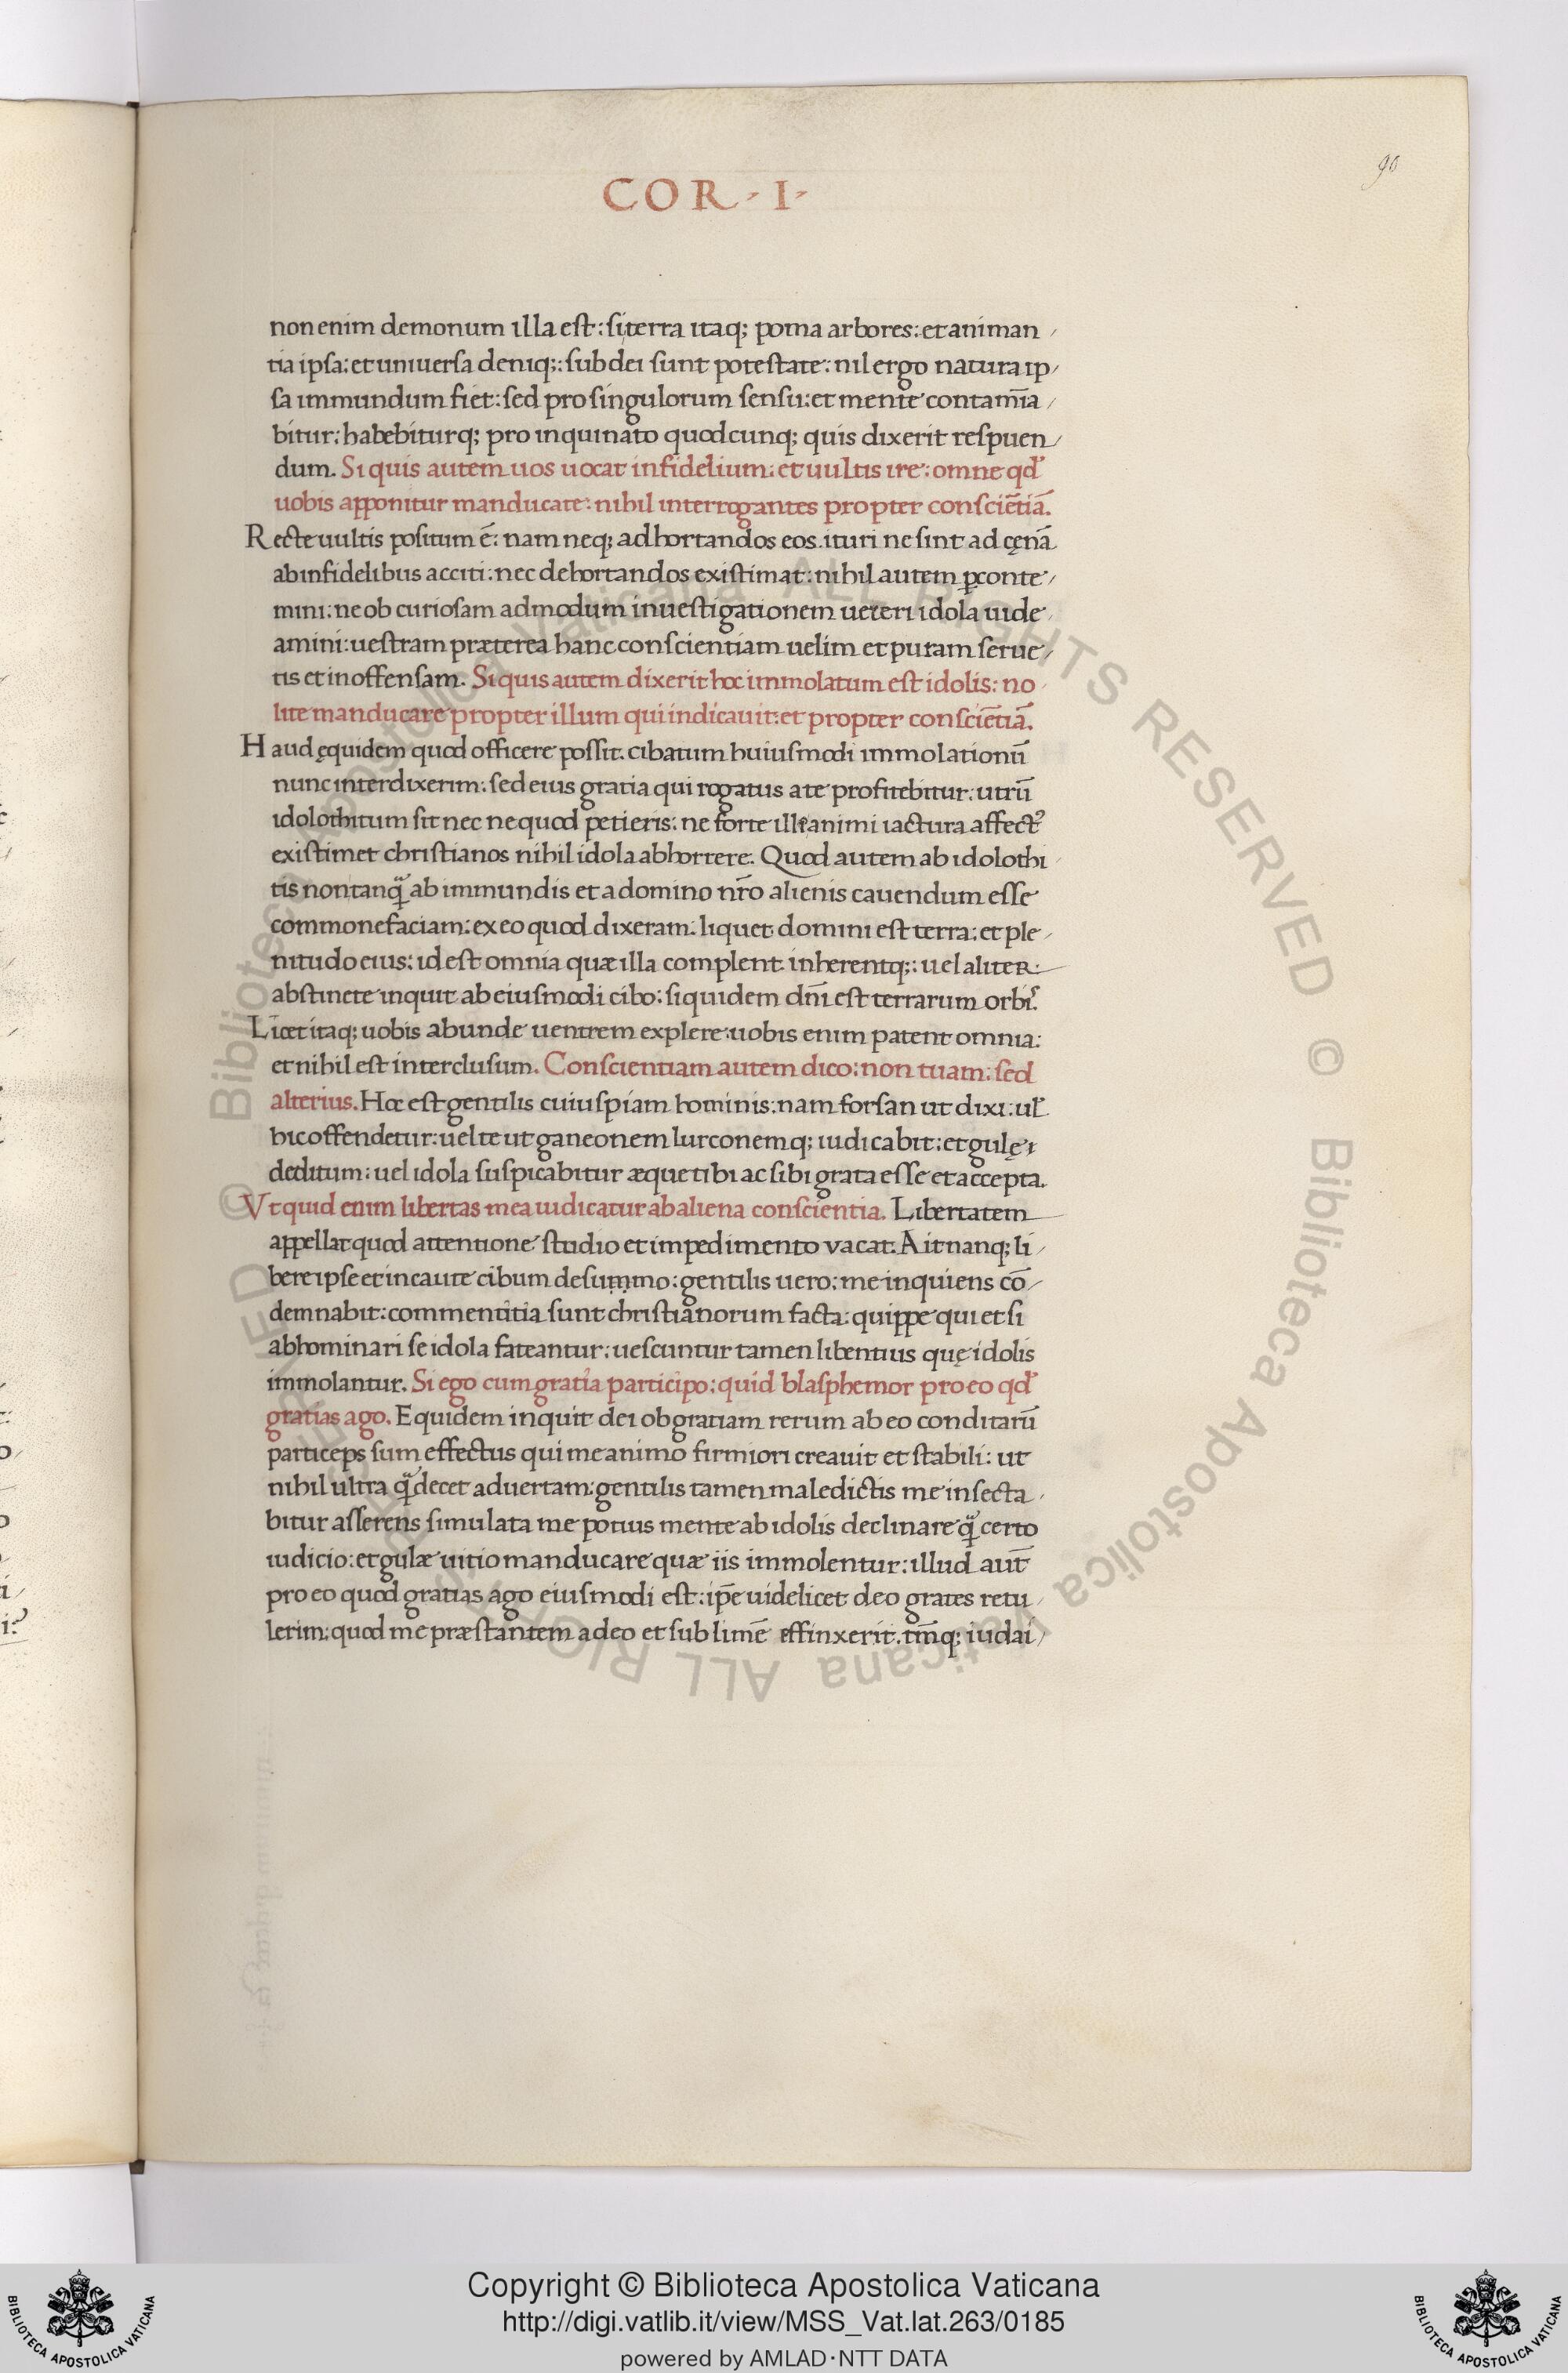 90
COR · I ·
non enim demonum illa est: si terra itaq; poma arbores: et animan
tia ipsa: et uniuersa deniq;: sub dei sunt potestate: nil ergo natura ip
sa immundum fiet: sed pro singulorum sensu: et mente contamĩa
bitur: habebiturq; pro inquinato quodcunq; quis dixerit respuen
dum. Si quis autem uos uocat infidelium: et uultis ire: omne qd̃
uobis apponitur manducate: nihil interrogantes propter consciẽtiã.
Recte uultis positum ẽ: nam neq; adhortandos eos ituri ne sint ad cęnã
ab infidelibus acciti: nec dehortandos existimat: nihil autem ꝑconte
mini: ne ob curiosam admodum inuestigationem uereri idola uide
amini: uestram præterea hanc conscientiam uelim et puram serue
tis et inoffensam. Si quis autem dixerit hoc immolatum est idolis: no
lite manducare propter illum qui indicauit: et propter consciẽtiã.
Haud ęquidem quod officere possit. cibatum huiusmodi immolationũ
nunc interdixerim: sed eius gratia qui rogatus a te profitebitur: utrũ
idolothitum sit nec ne quod petieris: ne forte ille animi iactura affect᾽
existimet christianos nihil idola abhorrere. Quod autem ab idolothi
tis non tanq̃ ab immundis et a domino nr̃o alienis cauendum esse
commonefaciam: ex eo quod dixeram: liquet domini est terra: et ple
nitudo eius: id est omnia quæ illa complent inherentq;: uel aliter:
abstinete inquit ab eiusmodi cibo: siquidem dñi est terrarum orbi᾽.
Licet itaq; uobis abunde uentrem explere: uobis enim patent omnia:
et nihil est interclusum. Conscientiam autem dico: non tuam: sed
alterius. Hoc est gentilis cuiuspiam hominis: nam forsan ut dixi: ul̃
hic offendetur: uel te ut ganeonem lurconemq; iudicabit: et gulę
deditum: uel idola suspicabitur æque tibi ac sibi grata esse et accepta.
Vt quid enim libertas mea iudicatur ab aliena conscientia. Libertatem
appellat quod attentione studio et impedimento vacat. Ait nanq; li
bere ipse et incaute cibum desummo: gentilis uero: me inquiens cõ
demnabit: commentitia sunt christianorum facta: quippe qui et si
abhominari se idola fateantur: uescuntur tamen libentius quę idolis
immolantur. Si ego cum gratia participo: quid blasphemor pro eo qd̃
gratias ago. Equidem inquit dei ob gratiam rerum ab eo conditarũ
particeps sum effectus qui me animo firmiori creauit et stabili: ut
nihil ultra q̃ decet aduertam: gentilis tamen maledictis me insecta
bitur asserens simulata me potius mente ab idolis declinare q̃ certo
iudicio: et gulæ uitio manducare quæ iis immolentur: illud aut̃
pro eo quod gratias ago eiusmodi est: ip̃e uidelicet deo grates retu
lerim: quod me præstantem adeo et sublimẽ effinxerit. tm̃q; iudai
© Biblioteca Apostolica Vaticana ALL RIGHTS RESERVED © Biblioteca Apostolica Vaticana ALL RIGHTS RESERVED
Copyright © Biblioteca Apostolica Vaticana
http://digi.vatlib.it/view/MSS_Vat.lat.263/0185
powered by AMLAD·NTT DATA
BIBLIOTECA APOSTOLICA VATICANA
BIBLIOTECA APOSTOLICA VATICANA